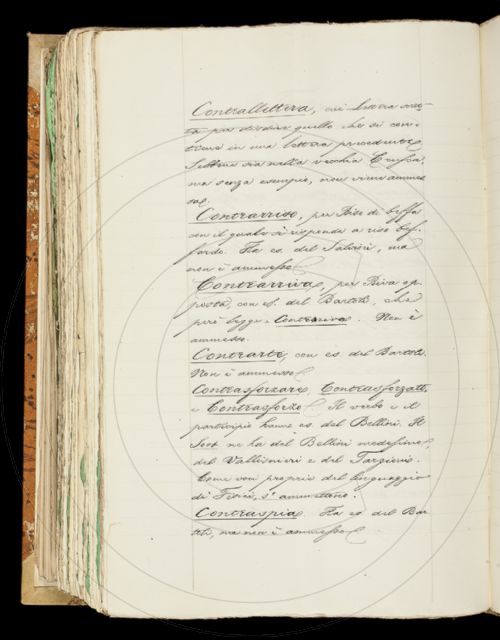 Contrallettera, cioè lettera scrit-
ta per disdire quello che si con-
tiene in una lettera precedente.
Sebbene sia nella vecchia Crusca,
ma senza esempio, non viene ammes
sa.
Contrarriso, per Riso di beffa
con il quale si risponde a riso bef-
fardo. Ha es. del Salvini, ma
non è ammesso.
Contrarriva, per Riva op-
posta, con es. del Bartoli, che
però legge Contrariva. Non è
ammesso.
Contrarte, con es. del Bartoli.
Non è ammesso.
Contrasforzare, Contrasforzato,
e Contrasforzo. Il verbo e il
participio hanno es. del Bellini. Il
Sost. ne ha del Bellini medesimo,
del Vallisnieri e del Targioni.
Come voci proprie del linguaggio
di Fisici, s'ammettono.
Contraspia. Ha es. del Bar
toli, ma non è ammesso.